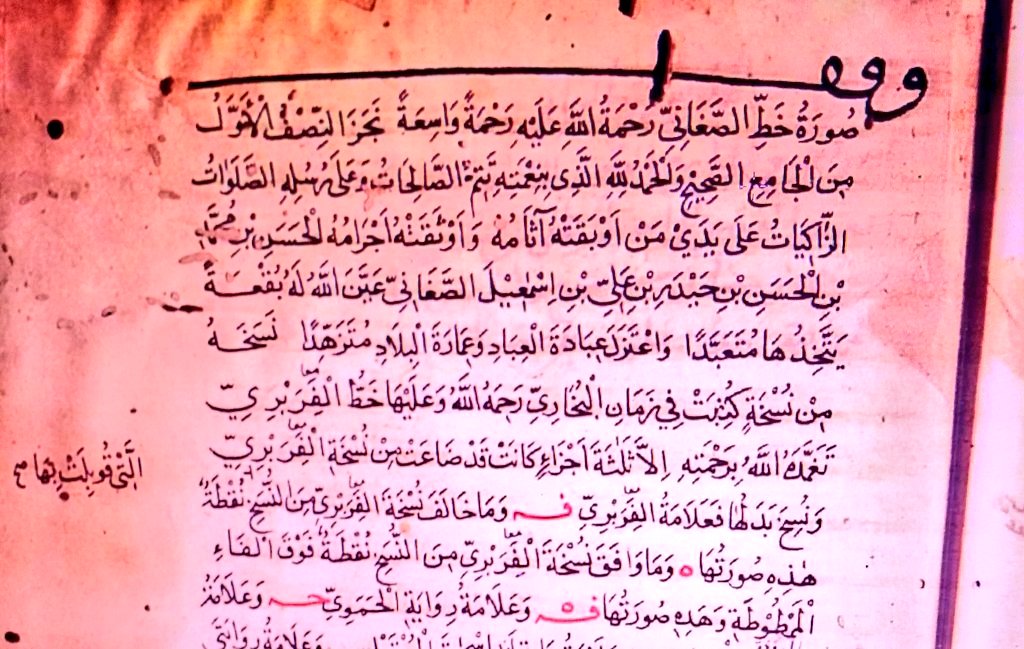 وقف
صُورَةُ خَطِّ الصَّغَانِيِّ رَحْمَةُ اللهِ عَلَيْهِ رَحْمَةً وَاسِعَةً نَجَزَ النِّصْفُ الْأَوَّلُ
مِنَ الْجَامِعِ الصَّحِيْحِ وَالْحَمْدُ لِلّٰهِ الَّذِى بِنِعْمَتِهِ تَتِمُّ الصَّالِحَاتُ وَعَلَى رُسُلِهِ الصَّلَوَاتُ
الزَّاكِيَاتُ عَلَى يَدَيْ مَنْ اَوْبَقَتْهُ آثَامُهُ وَاَوْثَقَتْهُ اَجْرَامُهُ الْحَسَنِ بْنِ مُحَمَّد
بْنِ الْحَسَنِ بْنِ حَيْدَرِ بْنِ عَلِيِّ بْنِ اِسْمٰعِيْلَ الصَّغَانِىِّ عَيَّنَ اللّٰهُ لَهُ بُقْعَةً
يَتَّخِذُهَا مُتَعَبَّدًا وَاعْتَزَلَ عِبَادَةَ الْعِبَادِ وَعِمَارَةَ الْبِلَادِ مُتَزَهِّدًا نَسَخَهُ
مِنْ نُسْخَةٍ كُتِبَتْ فِي زَمَانِ الْبُخَارِيِّ رَحِمَهُ اللّٰهُ وَعَلَيْهَا خَطُّ الْفِرَبْرِيِّ
تَغَمَّدَهُ اللّٰهُ بِرَحْمَتِهِ اِلاَّ ثَلٰثَةَ اَجْزَاءٍ كَانَتْ قَدْ ضَاعَتْ مِنْ نُسْخَةِ الْفِرَبْرِيِّ
الَّتِى قُوبِلَتْ بِهَا صح
وَنُسِخَ بَدَلَهَا فَعَلَامَةُ الْفِرَبْرِيِّ فـــه وَمَا خَالَفَ نُسْخَةَ الْفِرَبْرِيِّ مِنَ النُّسَخِ نُقْطَةٌ
هٰذِهِ صُورَتُهَا ه وَمَا وَافَقَ نُسْخَةَ الْفِرَبْرِيِّ مِنَ النُّسَخِ نُقْطَةٌ فَوْقَ الْفَاءِ
الْمَمْطُوطَةِ وَهَذِهِ صُورَتُهَا فـــه وَعَلَامَةُ رِوَايَةِ الْحَمَوِيِّ حـــه وَعَلَامَةُ